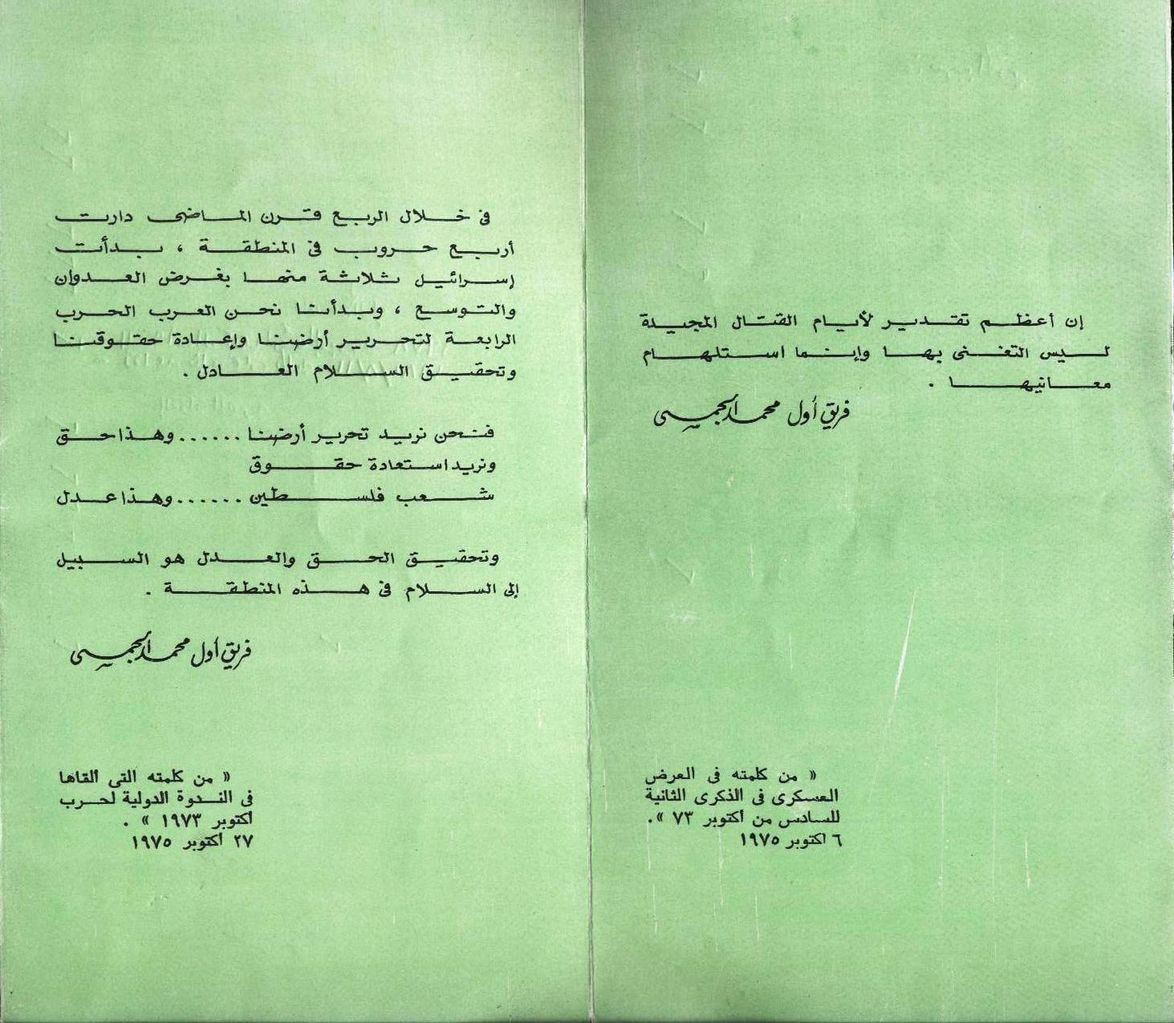 إن أعظم تقدير لأيام القتال المجيدة
ليس التغنى بها وإنما استلهام
معانيها .
فريق أول محمد الجمسى
« من كلمته فى العرض
العسكرى فى الذكرى الثانية
للسادس من أكتوبر ٧٣ ».
٦ اكتوبر ١٩٧٥
فى خلال الربع قرن الماضى دارت
أربع حروب فى المنطقة ، بدأت
إسرائيل ثلاثة منها بغرض العدوان
والتوسع ، وبدأنا نحن العرب الحرب
الرابعة لتحرير أرضنا وإعادة حقوقنا
وتحقيق السلام العادل .
فنحن نريد تحرير أرضنا ...... وهذا حق
ونريد استعادة حقوق
شعب فلسطين ...... وهذا عدل
وتحقيق الحق والعدل هو السبيل
إلى السلام فى هذه المنطقة .
فريق أول محمد الجمسى
« من كلمته التى القاها
فى الندوة الدولية لحرب
اكتوبر ١٩٧٣ » .
٢٧ أكتوبر ١٩٧٥